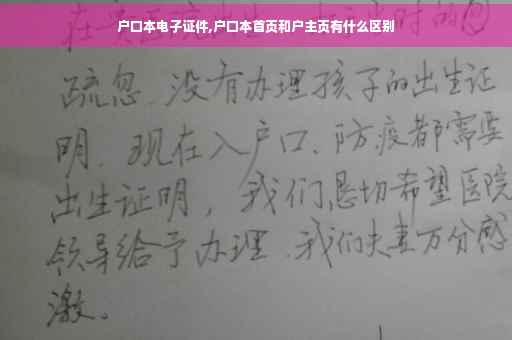 户口本电子证件,户口本首页和户主页有什么区别
疏忽.没有办理孩子的出生证
明.现在入户口、防疫都需要
出生证明，我们恳切希望医院
领导给予办理.我们夫妻万分感
激。